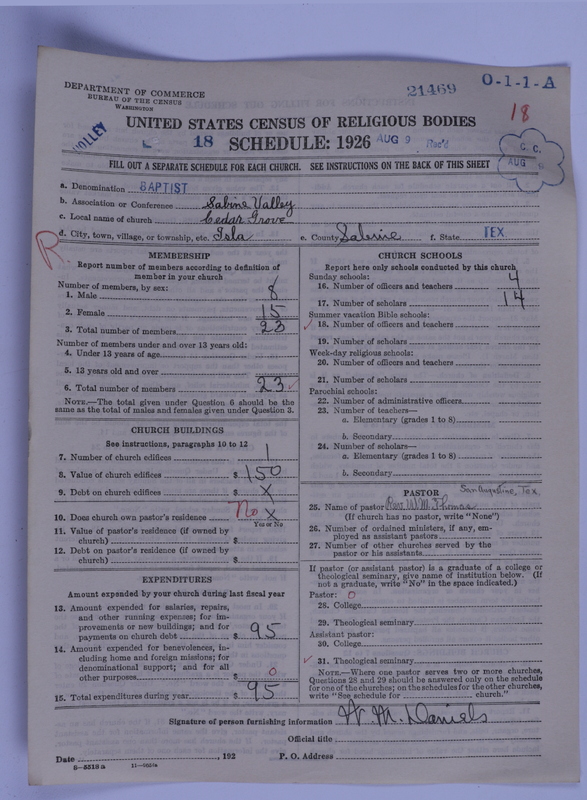 DEPARTMENT OF COMMERCE
BUREAU OF THE CENSUS
WASHINGTON
21469
O-1-1-A
18
UNITED STATES CENSUS OF RELIGIOUS BODIES
18 SCHEDULE: 1926 AUG 9 Rec'd
C. C.
AUG
FILL OUT A SEPARATE SCHEDULE FOR EACH CHURCH. SEE INSTRUCTIONS ON THE BACK OF THIS SHEET
a. Denomination BAPTIST
b. Association or Conference Sabine Valley
c. Local name of church Cedar Grove
d. City, town, village, or township, etc. Isla e. County Sabine f. State TEX
R
MEMBERSHIP
Report number of members according to definition of
member in your church
Number of members, by sex:
1. Male 8
2. Female 15
3. Total number of members 23
Number of members under and over 13 years old:
4. Under 13 years of age
5. 13 years old and over
6. Total number of members 23
NOTE.—The total given under Question 6 should be the
same as the total of males and females given under Question 3.
CHURCH BUILDINGS
See instructions, paragraphs 10 to 12
7. Number of church edifices 1
8. Value of church edifices $ 150
9. Debt on church edifices $ X
10. Does church own pastor's residence No X
Yes or No
11. Value of pastor's residence (if owned by
church) $
12. Debt on pastor's residence (if owned by
church) $
EXPENDITURES
Amount expended by your church during last fiscal year
13. Amount expended for salaries, repairs,
and other running expenses; for im-
provements or new buildings; and for
payments on church debt $ 95
14. Amount expended for benevolences, in-
cluding home and foreign missions; for
denominational support; and for all
other purposes $ 0
15. Total expenditures during year $ 95
CHURCH SCHOOLS
Report here only schools conducted by this church
Sunday schools:
16. Number of officers and teachers 4
17. Number of scholars 14
Summer vacation Bible schools:
18. Number of officers and teachers
19. Number of scholars
Week-day religious schools:
20. Number of officers and teachers
21. Number of scholars
Parochial schools:
22. Number of administrative officers
23. Number of teachers—
a. Elementary (grades 1 to 8)
b. Secondary
24. Number of scholars—
a. Elementary (grades 1 to 8)
b. Secondary
PASTOR San Augustine, Tex.
25. Name of pastor Rev. W.M. Thomas
(If church has no pastor, write "None")
26. Number of ordained ministers, if any, em-
ployed as assistant pastors
27. Number of other churches served by the
pastor or his assistants
If pastor (or assistant pastor) is a graduate of a college or
theological seminary, give name of institution below. (If
not a graduate, write "No" in the space indicated.)
Pastor: 0
28. College
29. Theological seminary
Assistant pastor:
30. College
31. Theological seminary
NOTE.—Where one pastor serves two or more churches,
Questions 28 and 29 should be answered only on the schedule
for one of the churches; on the schedules for the other churches,
write "See schedule for church."
Signature of person furnishing information W. M. Daniels
Official title
Date , 192 P. O. Address